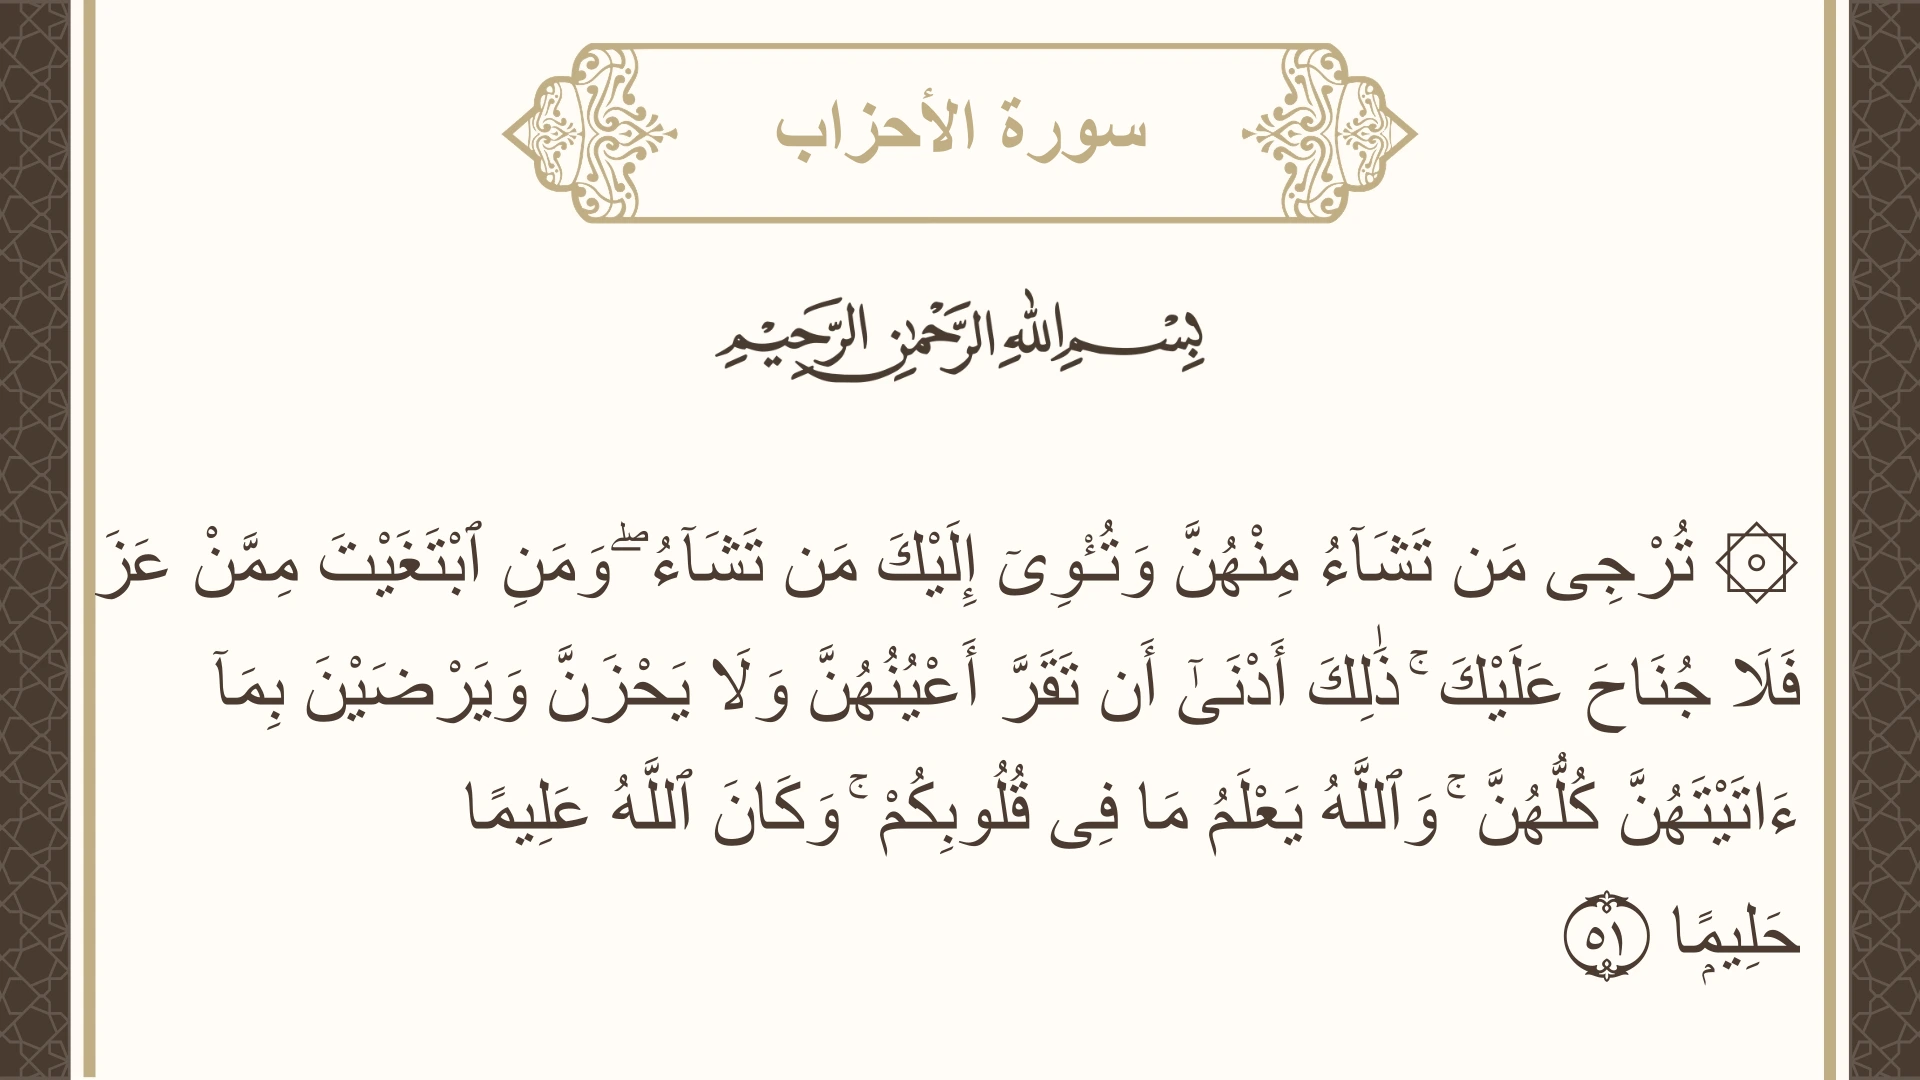 سورة الأحزاب
بِسْمِ اللهِ الرَّحْمٰنِ الرَّحِيْمِ
۞ تُرْجِى مَن تَشَآءُ مِنْهُنَّ وَتُـْٔوِىٓ إِلَيْكَ مَن تَشَآءُ ۖ وَمَنِ ٱبْتَغَيْتَ مِمَّنْ عَزَ
فَلَا جُنَاحَ عَلَيْكَ ۚ ذَٰلِكَ أَدْنَىٰٓ أَن تَقَرَّ أَعْيُنُهُنَّ وَلَا يَحْزَنَّ وَيَرْضَيْنَ بِمَآ
ءَاتَيْتَهُنَّ كُلُّهُنَّ ۚ وَٱللَّهُ يَعْلَمُ مَا فِى قُلُوبِكُمْ ۚ وَكَانَ ٱللَّهُ عَلِيمًا
حَلِيمًۭا ۝٥١